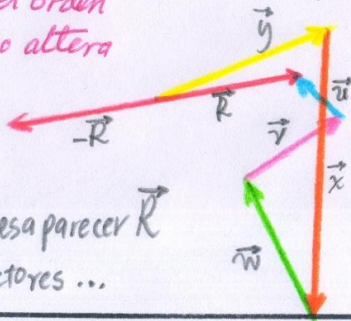 el orden
o altera
y⃗
R⃗
u⃗
-R⃗
v⃗
x⃗
desaparecer R⃗
w⃗
ctores ...